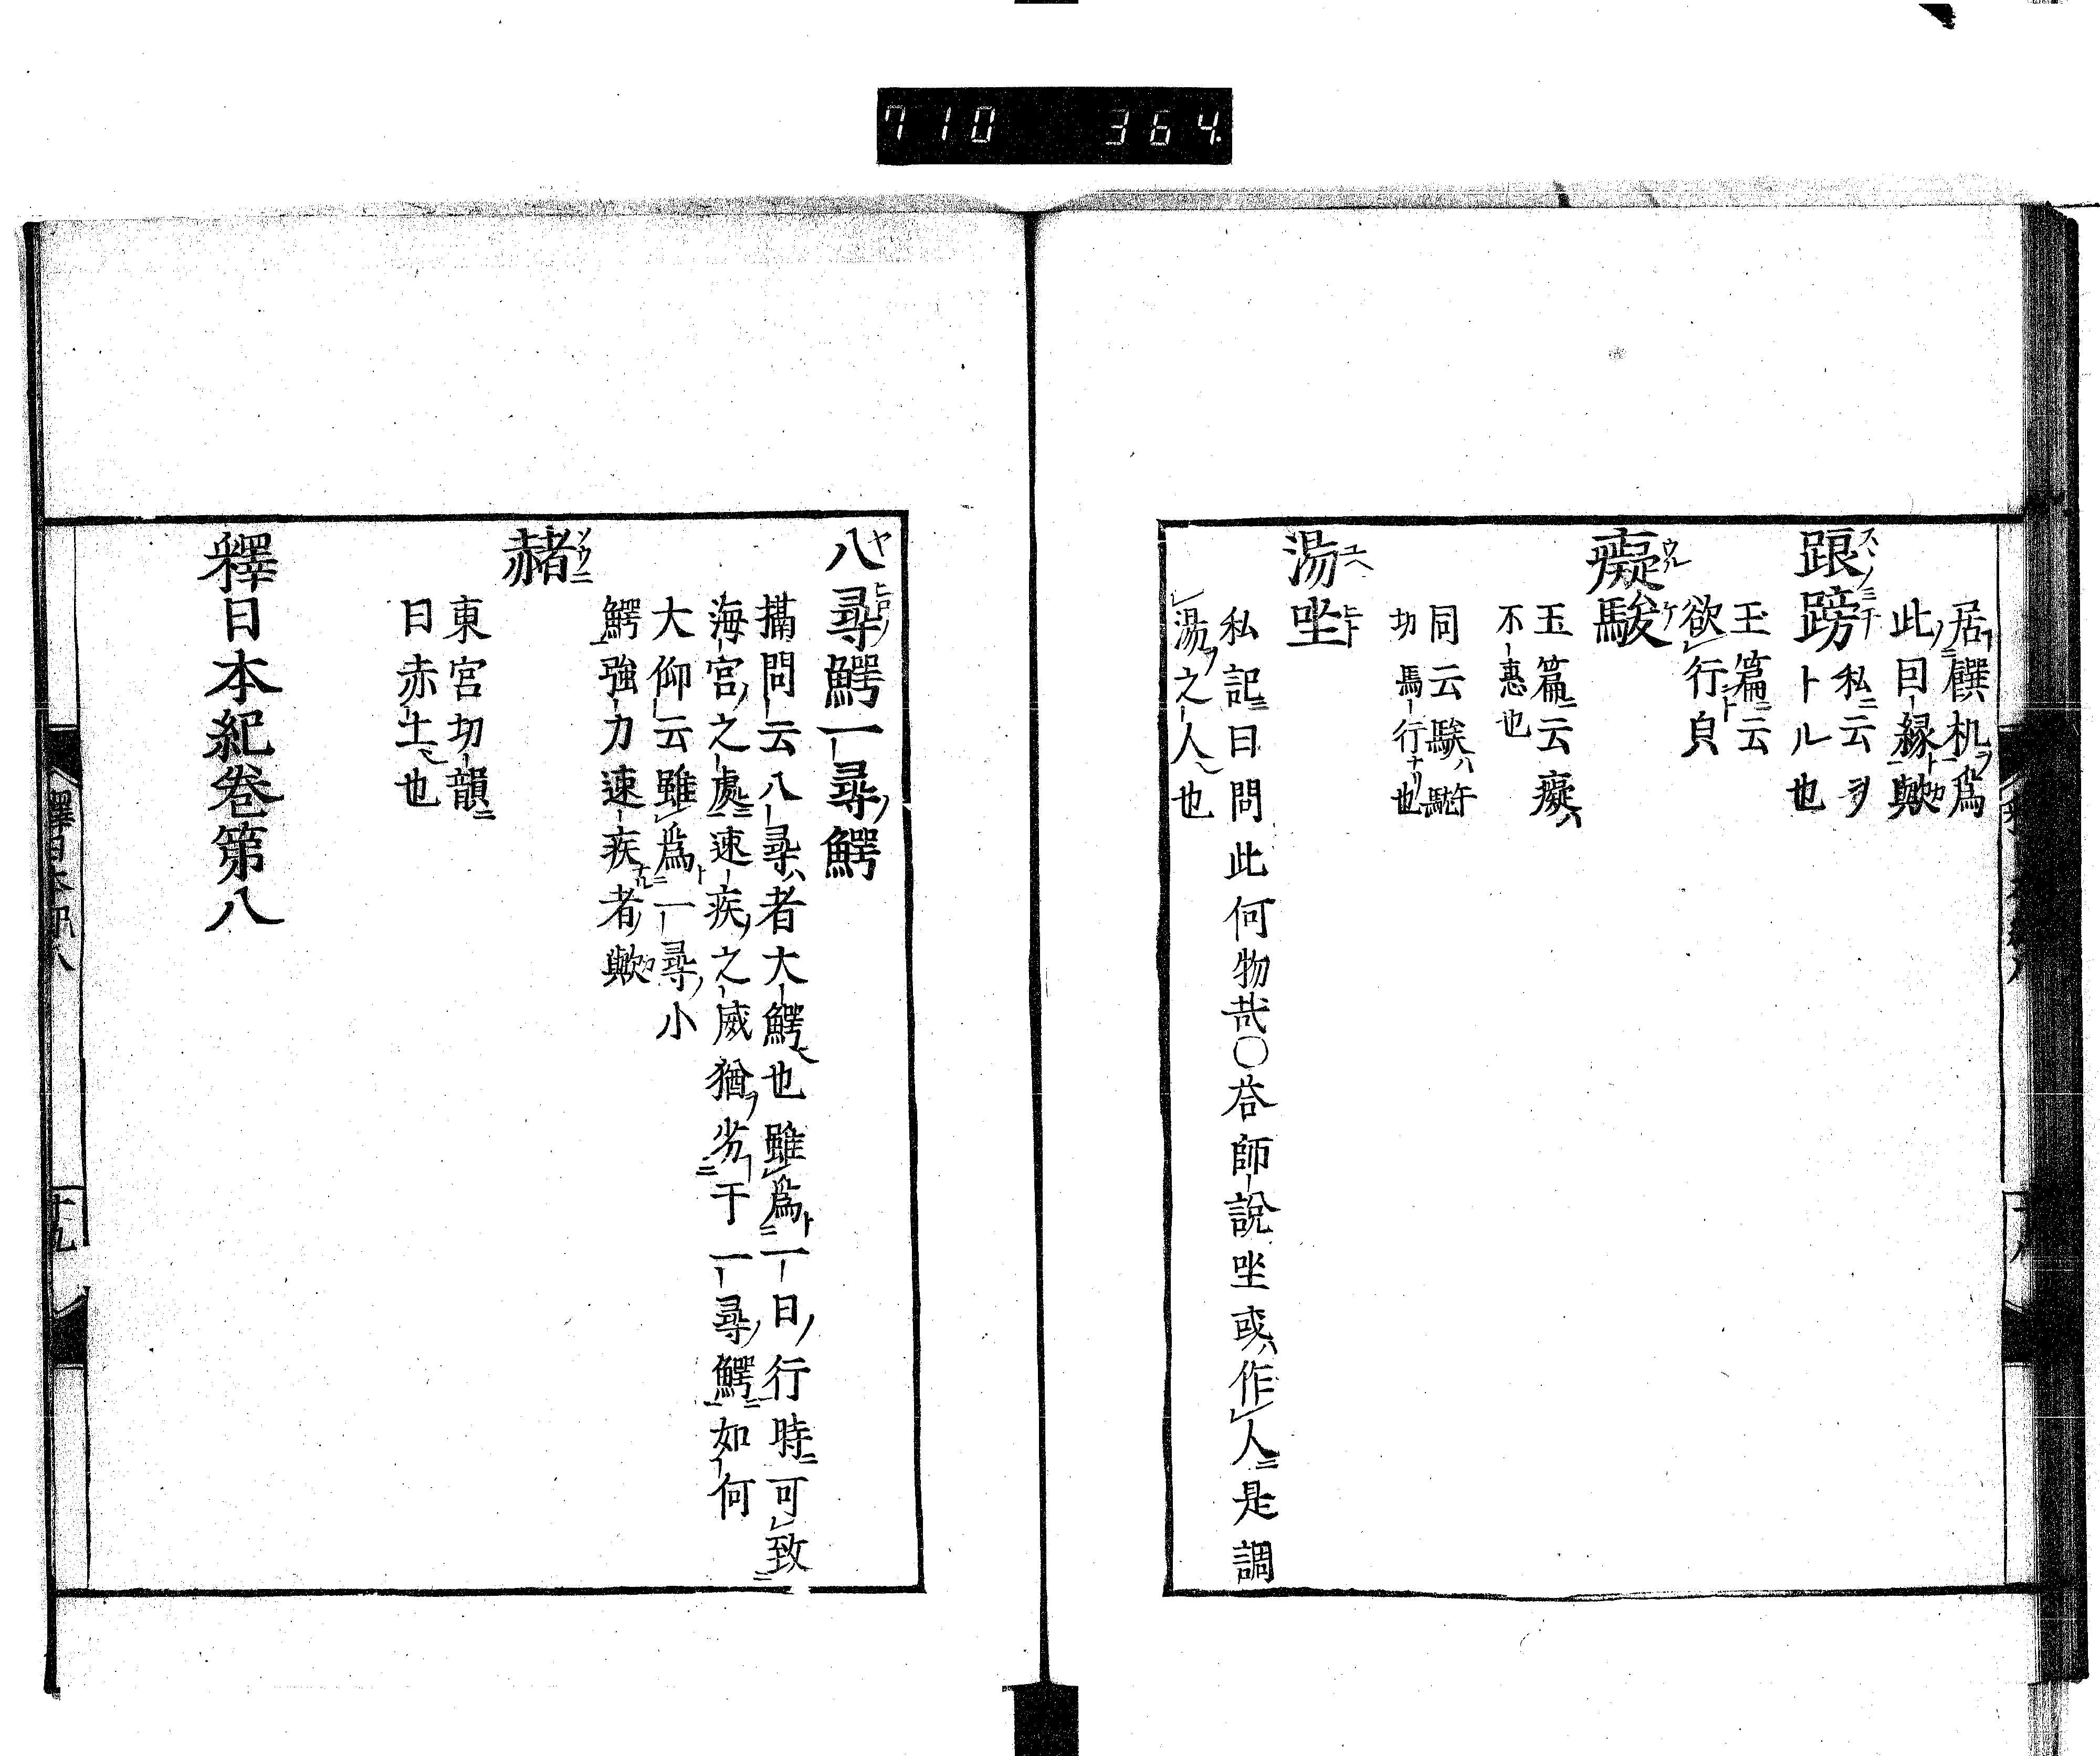 710 364
居饌机為
此曰縁歟
踉蹡 私云ヲ
トル也
玉篇云
欲行皃
癡騃
玉篇云癡
不惠也
同云騃
切馬行也
湯坐
私記曰問此何物哉○荅師說坐或作人是調
湯之人也
八尋鰐一尋鰐
摛問云八尋者大鰐也雖為一日行時可致
海宮之處速疾之威猶劣于一尋鰐如何
大仰云雖為一尋小
鰐強力速疾者歟
赭
東宮切韻
曰赤土也
釋日本紀卷第八
十九